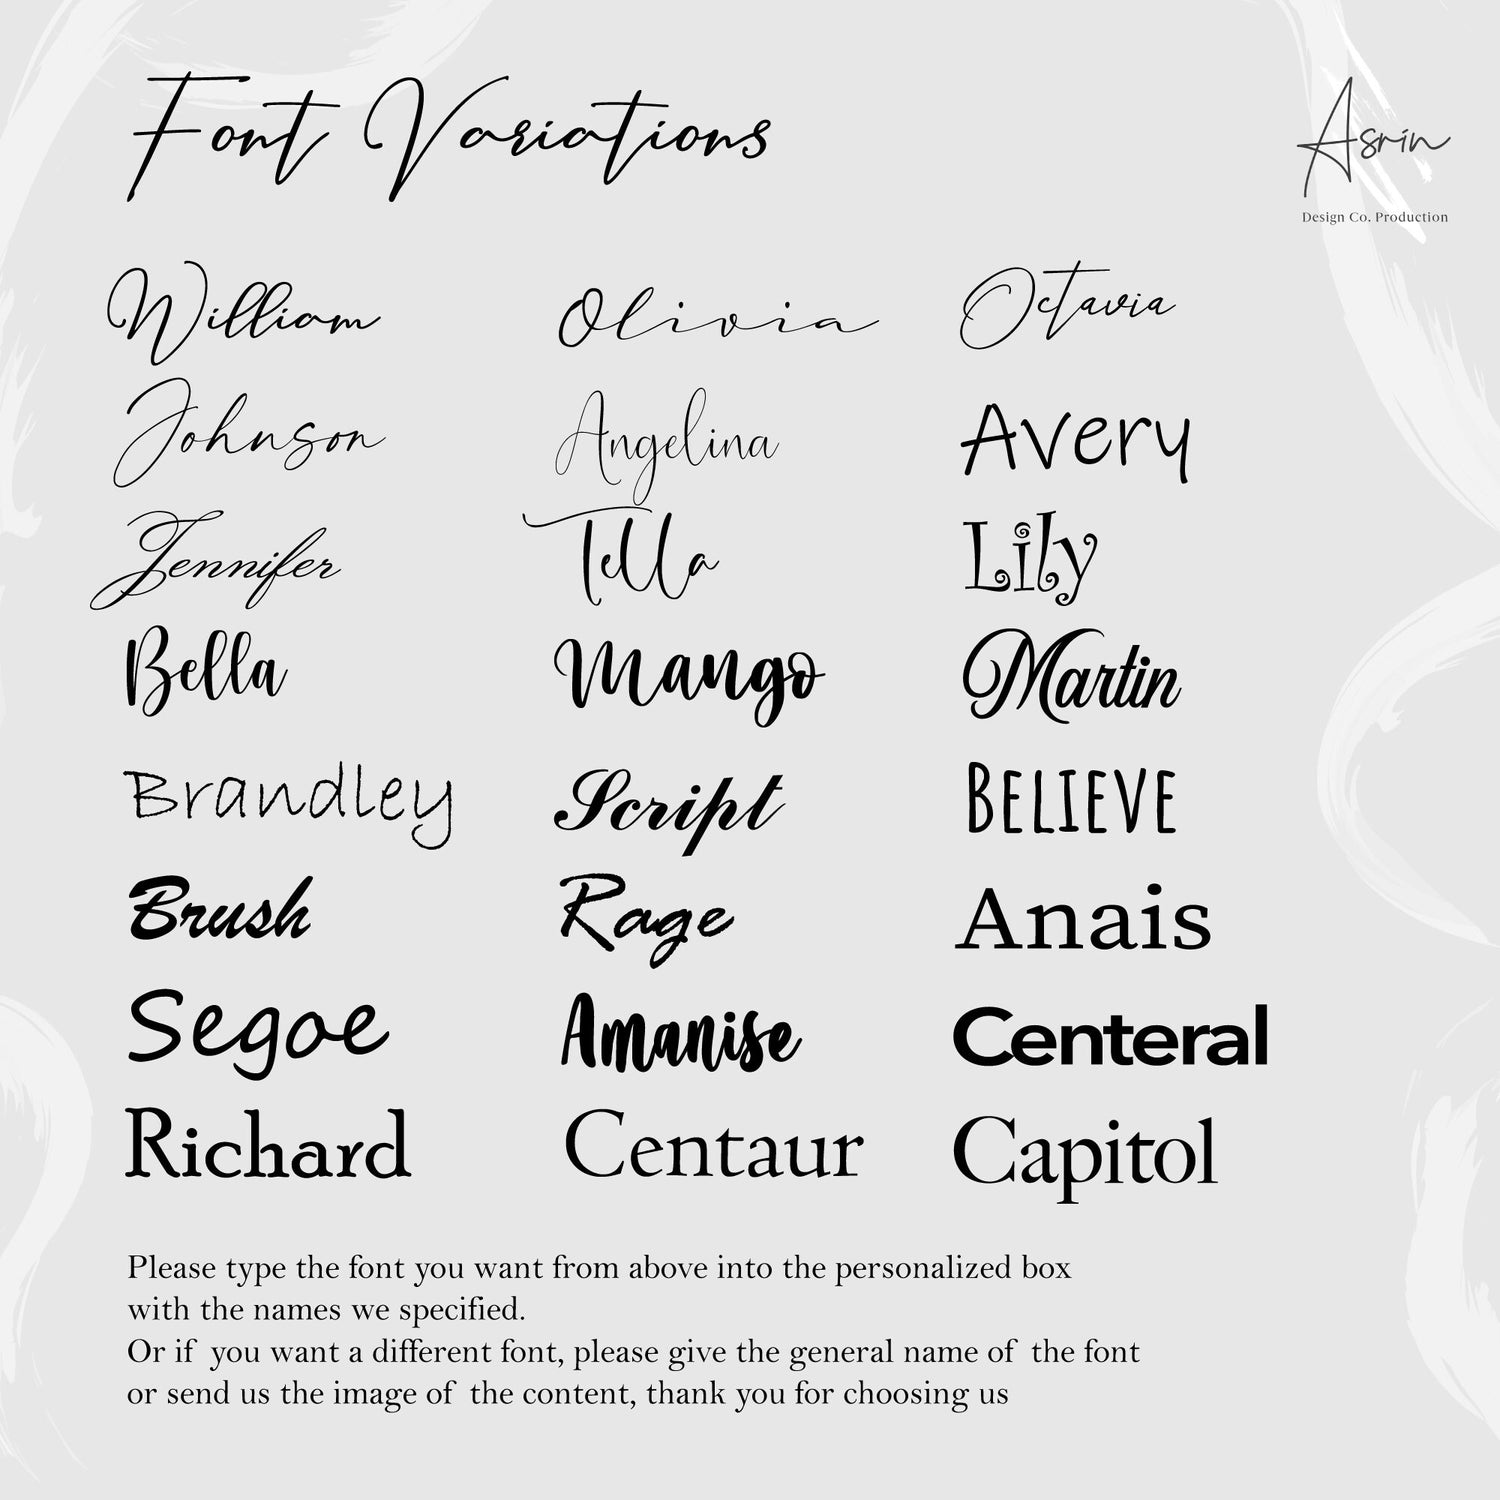 Font Variations
Asrin
Design Co. Production
William Olivia Octavia
Johnson Angelina Avery
Jennifer Tella Lily
Bella Mango Martin
Brandley Script BELIEVE
Brush Rage Anais
Segoe Amanise Centeral
Richard Centaur Capitol
Please type the font you want from above into the personalized box
with the names we specified.
Or if you want a different font, please give the general name of the font
or send us the image of the content, thank you for choosing us